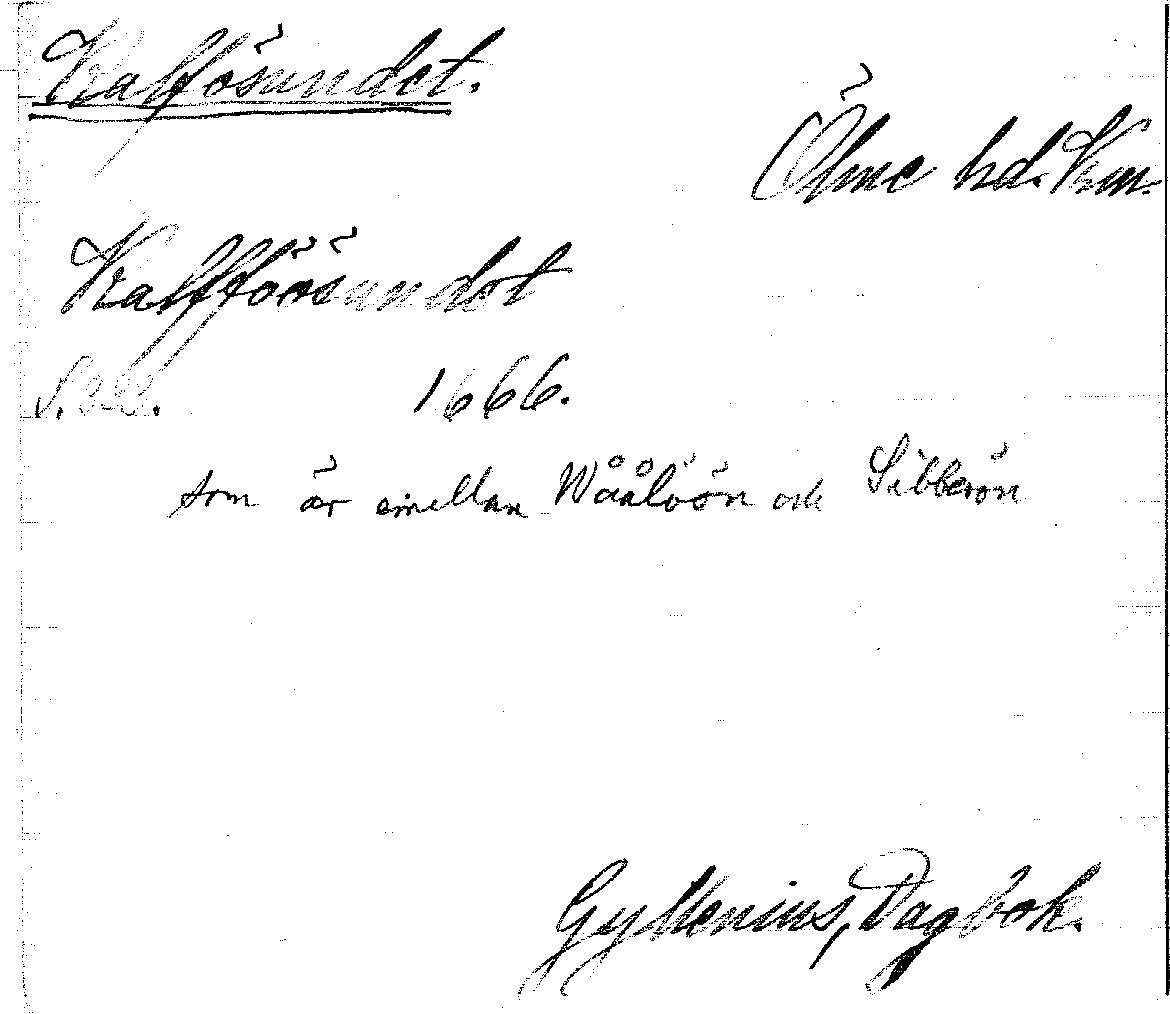 Kalfösundet.
Ölme hd. Vrm.
Kalfföösundet
1666.
som är emellan Wååløön och Sibberön
Gyllenius, Dagbok.